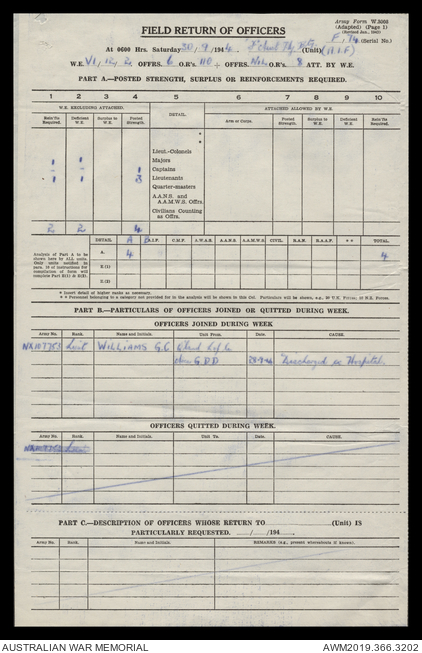 Army Form W.3008
(Adapted) (Page 1)
(Revised Jan., 1942)
FIELD RETURN OF OFFICERS
F. 74 (Serial No.)
At 0600 Hrs. Saturday 30/9/1944. (Unit) (A.I.F)
W.E. VI/12/2 OFFRS. 6 O.R's. 110 + OFFRS. Nil O.R's. 8 ATT. BY W.E.
PART A.—POSTED STRENGTH, SURPLUS OR REINFORCEMENTS REQUIRED.
1 2 3 4 5 6 7 8 9 10
W.E. EXCLUDING ATTACHED. DETAIL. ATTACHED ALLOWED BY W.E.
Rein'fts Required. Deficient W.E. Surplus to W.E. Posted Strength. Arm or Corps. Posted Strength. Surplus to W.E. Deficient W.E. Rein'fts Required.
*
*
Lieut.-Colonels
1 1 Majors
- - 1 Captains
1 1 3 Lieutenants
Quarter-masters
A.A.N.S. and A.A.M.W.S. Offrs.
Civilians Counting as Offrs.
2 2 4
DETAIL. A.I.F. C.M.F. A.W.A.S. A.A.N.S. A.A.M.W.S. CIVIL. R.A.N. R.A.A.F. ** TOTAL.
Analysis of Part A to be shown here by ALL units. Only units notified in para. 14 of instructions for compilation of form will complete Part X(1) & X(2).
A. 4 4
X (1)
X (2)
* Insert detail of higher ranks as necessary.
** Personnel belonging to a category not provided for in the analysis will be shown in this Col. Particulars will be shown, e.g., 20 U.S. Forces, 10 N.Z. Forces.
PART B.—PARTICULARS OF OFFICERS JOINED OR QUITTED DURING WEEK.
OFFICERS JOINED DURING WEEK
Army No. Rank. Name and Initials. Unit Ex. Date. CAUSE.
NX107753 Lieut WILLIAMS G.C
GDD Discharged ex Hospital
OFFICERS QUITTED DURING WEEK
Army No. Rank. Name and Initials. Unit To. Date. CAUSE.
PART C.—DESCRIPTION OF OFFICERS WHOSE RETURN TO (Unit) IS
PARTICULARLY REQUESTED. / /194 .
Army No. Rank. Name and Initials. REMARKS (e.g., present whereabouts if known).
AUSTRALIAN WAR MEMORIAL
AWM2019.366.3202